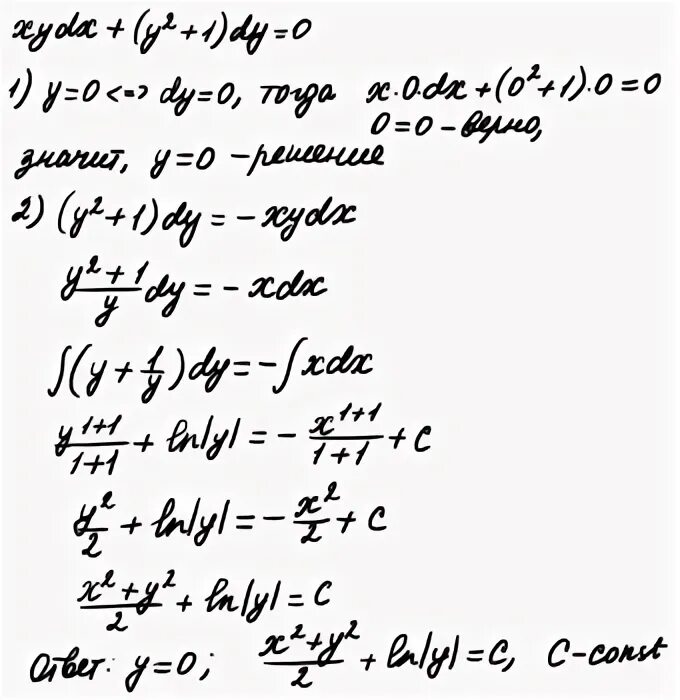 xydx + (y² + 1)dy = 0
1) y = 0 <=> dy = 0, тогда x·0·dx + (0² + 1)·0 = 0
0 = 0 – верно,
значит, y = 0 – решение
2) (y² + 1)dy = – xydx
(y² + 1)/y dy = – xdx
∫(y + 1/y)dy = –∫xdx
y^(1+1)/(1+1) + ln|y| = – x^(1+1)/(1+1) + C
y²/2 + ln|y| = – x²/2 + C
(x² + y²)/2 + ln|y| = C
Ответ: y = 0; (x² + y²)/2 + ln|y| = C, C – const